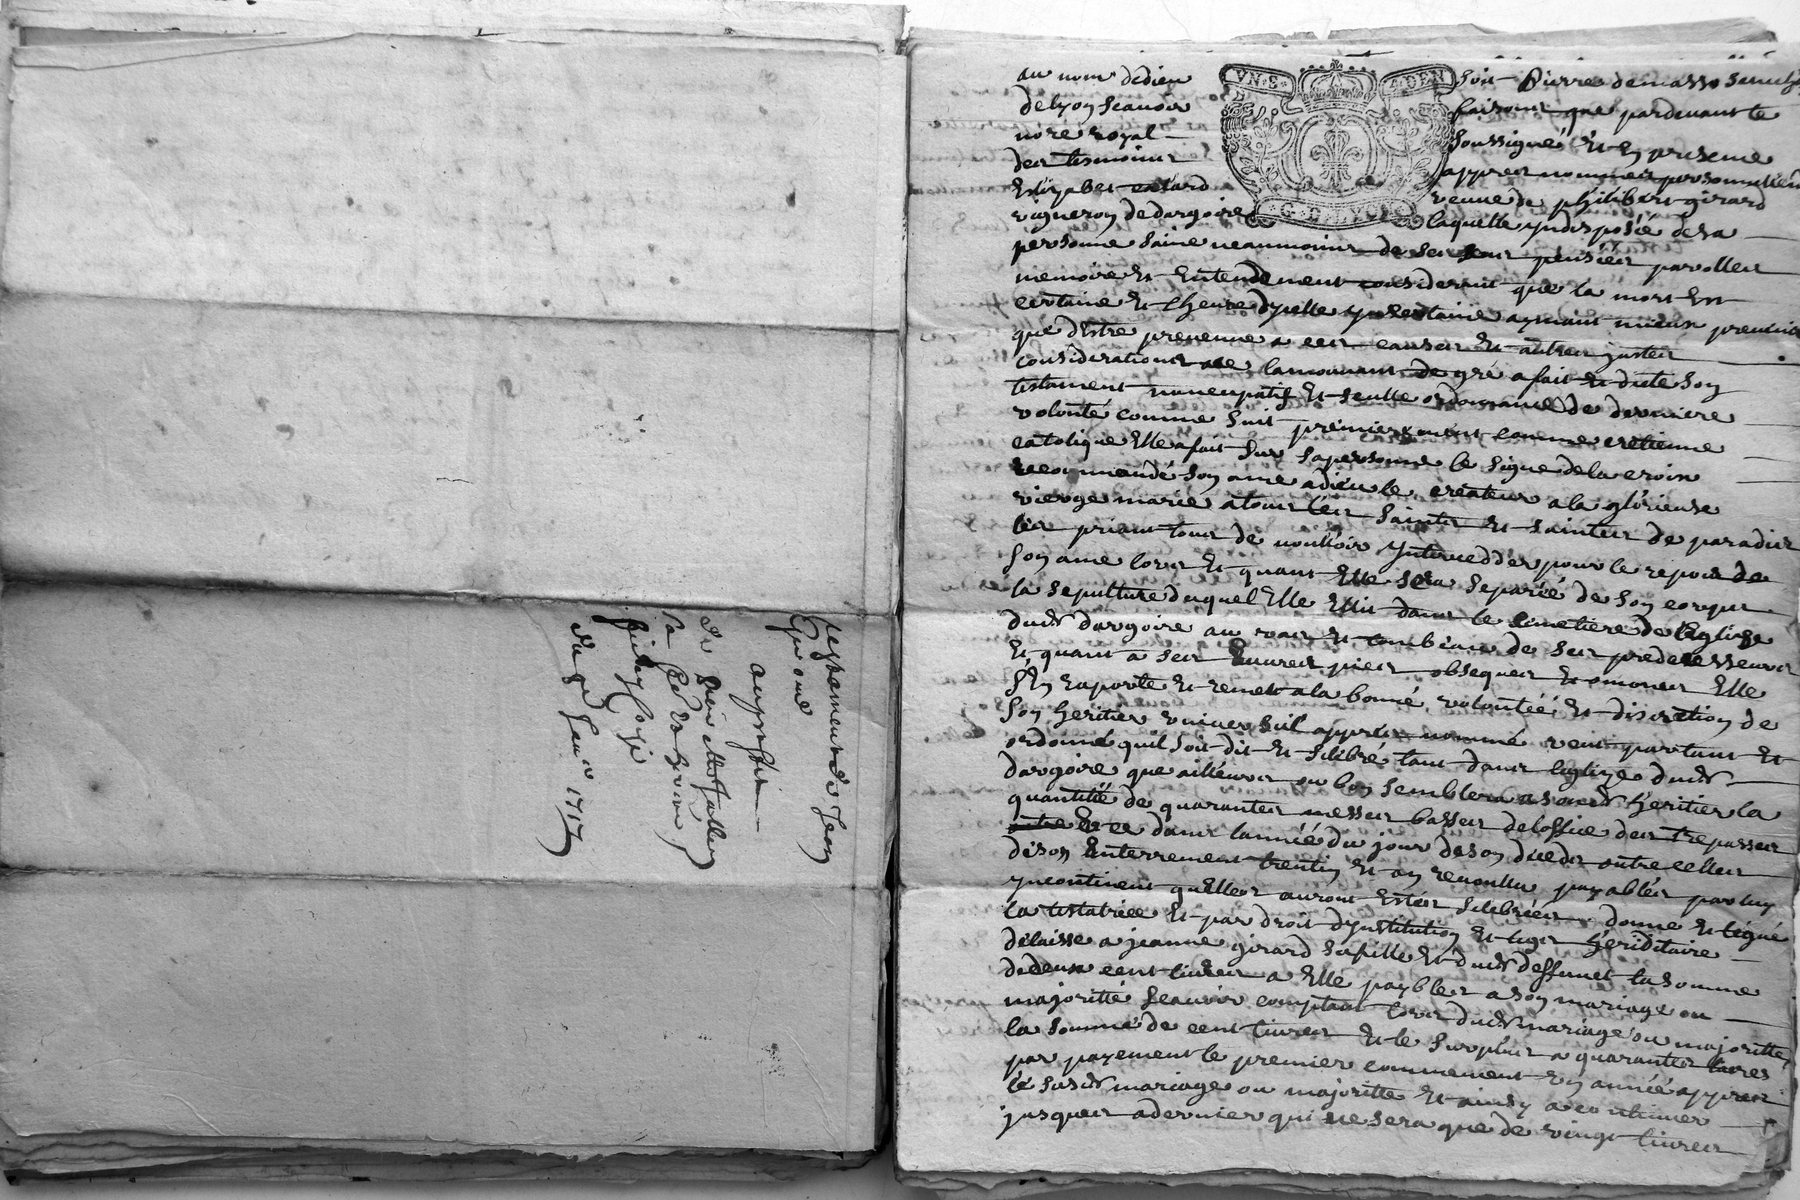 Testament de Jean
Girard
du 9e Janv. 1717
VN·S· 4·DEN
G·D·LYON
au nom de dieu soit Pierre demasso seneschal
de lyon scavoir faisons que pardevant le
no re royal soussigné Et En presence
des tesmoins appres nommes personnellem
Elizabet vefve de philibert girard
vigneron de dargoire laquelle yndisposéé de sa
personne saine neaumoins de ses sens penséés parolles
memoire Et Entendement considerant que la mort Est
certaine Et lheure dycelle yncertaine aymant mieux prevenir
que dEstre prevenue a ces causes Et autres justes
considerations de gré a fait Et dicté son
testament nuncupatif Et seulle ordonnance de derniere
volonté comme suit premierement comme cretienne
catolique Elle a fait sur sa personne le signe de la croix
recommandé son ame a dieu le createur a la glorieuse
vierge marie a tous les saints Et saintes de paradis
les priant tous de voulloir yntercedder pour le repos de
son ame lors Et quant Elle sera separéé de son corps
la sepulture duquel Elle Eslit dans le simetiere de lEglise
dud dargoire au vas Et tombeau de ses predecesseurs
Et quant a ses Euvres pies obseques Et omones Elle
sEn raporte Et remet a la bonne volontéé Et discretion de
son heritier universel appres nommé veut partant Et
ordonne quil soit dit Et selebré tant dans leglize dud
dargoire que ailleurs ou bon semblera a sond heritier la
quantitté de quarantes messes basses de loffice des trepasses
dans lannéé du jour de son deceds outre celles
de son Enterrement payables par luy
yncontinent quElles auront Estéés selebréés donne Et légue
la testatrice Et par droit dynstitution Et legs heriditaire
delaisse a jeanne girard sa fille Et dud deffunct la somme
de deux cent livres a Elle paybles a son mariage ou
majoritté scavoir comptant lors dud mariage ou majoritté
la somme de cent livres Et le surplus a quarantes livres
par payement le premier commencent un année appres
le susd mariage ou majoritte Et ainsy a continuer
jusques a dernier qui ne sera que de vingt livres